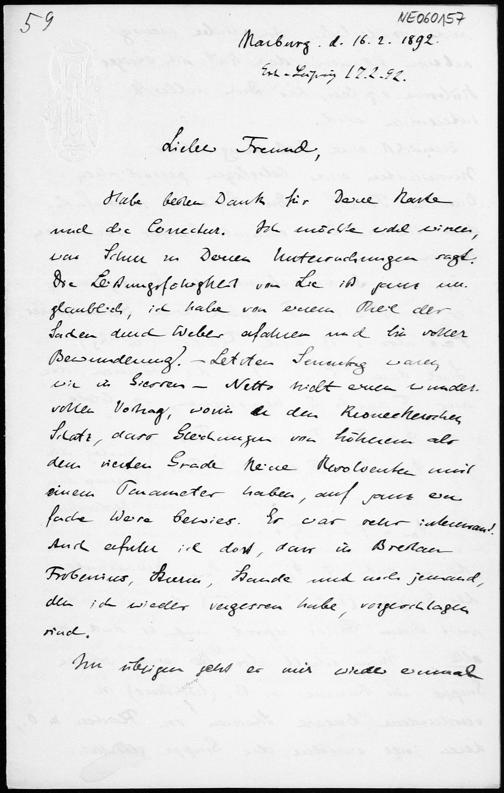 59
NE060157
Marburg. d. 16. 2. 1892.
Erh. Leipzig 17.2.92.
Lieber Freund,
Habe besten Dank für Deine Karte
und die Correctur. Ich möchte wohl wissen,
was Schur zu Deinen Untersuchungen sagt.
Die Leistungsfähigkeit von Lie ist ganz un
glaublich, ich habe von einem Theil der
Sachen durch Weber erfahren und bin voller
Bewunderung! – Letzten Sonntag waren
wir in Giessen – Netto hielt einen wunder-
vollen Vortrag, worin er den Kroneckerschen
Satz, dass Gleichungen von höherem als
dem vierten Grade keine Resolventen mit
einem Parameter haben, auf ganz ein
fache Weise bewies. Es war sehr interessant.
Auch erfuhr ich dort, dass in Breslau
Frobenius, Sturm, Staude und noch jemand,
den ich wieder vergessen habe, vorgeschlagen
sind.
Im übrigen geht es mir wieder einmal